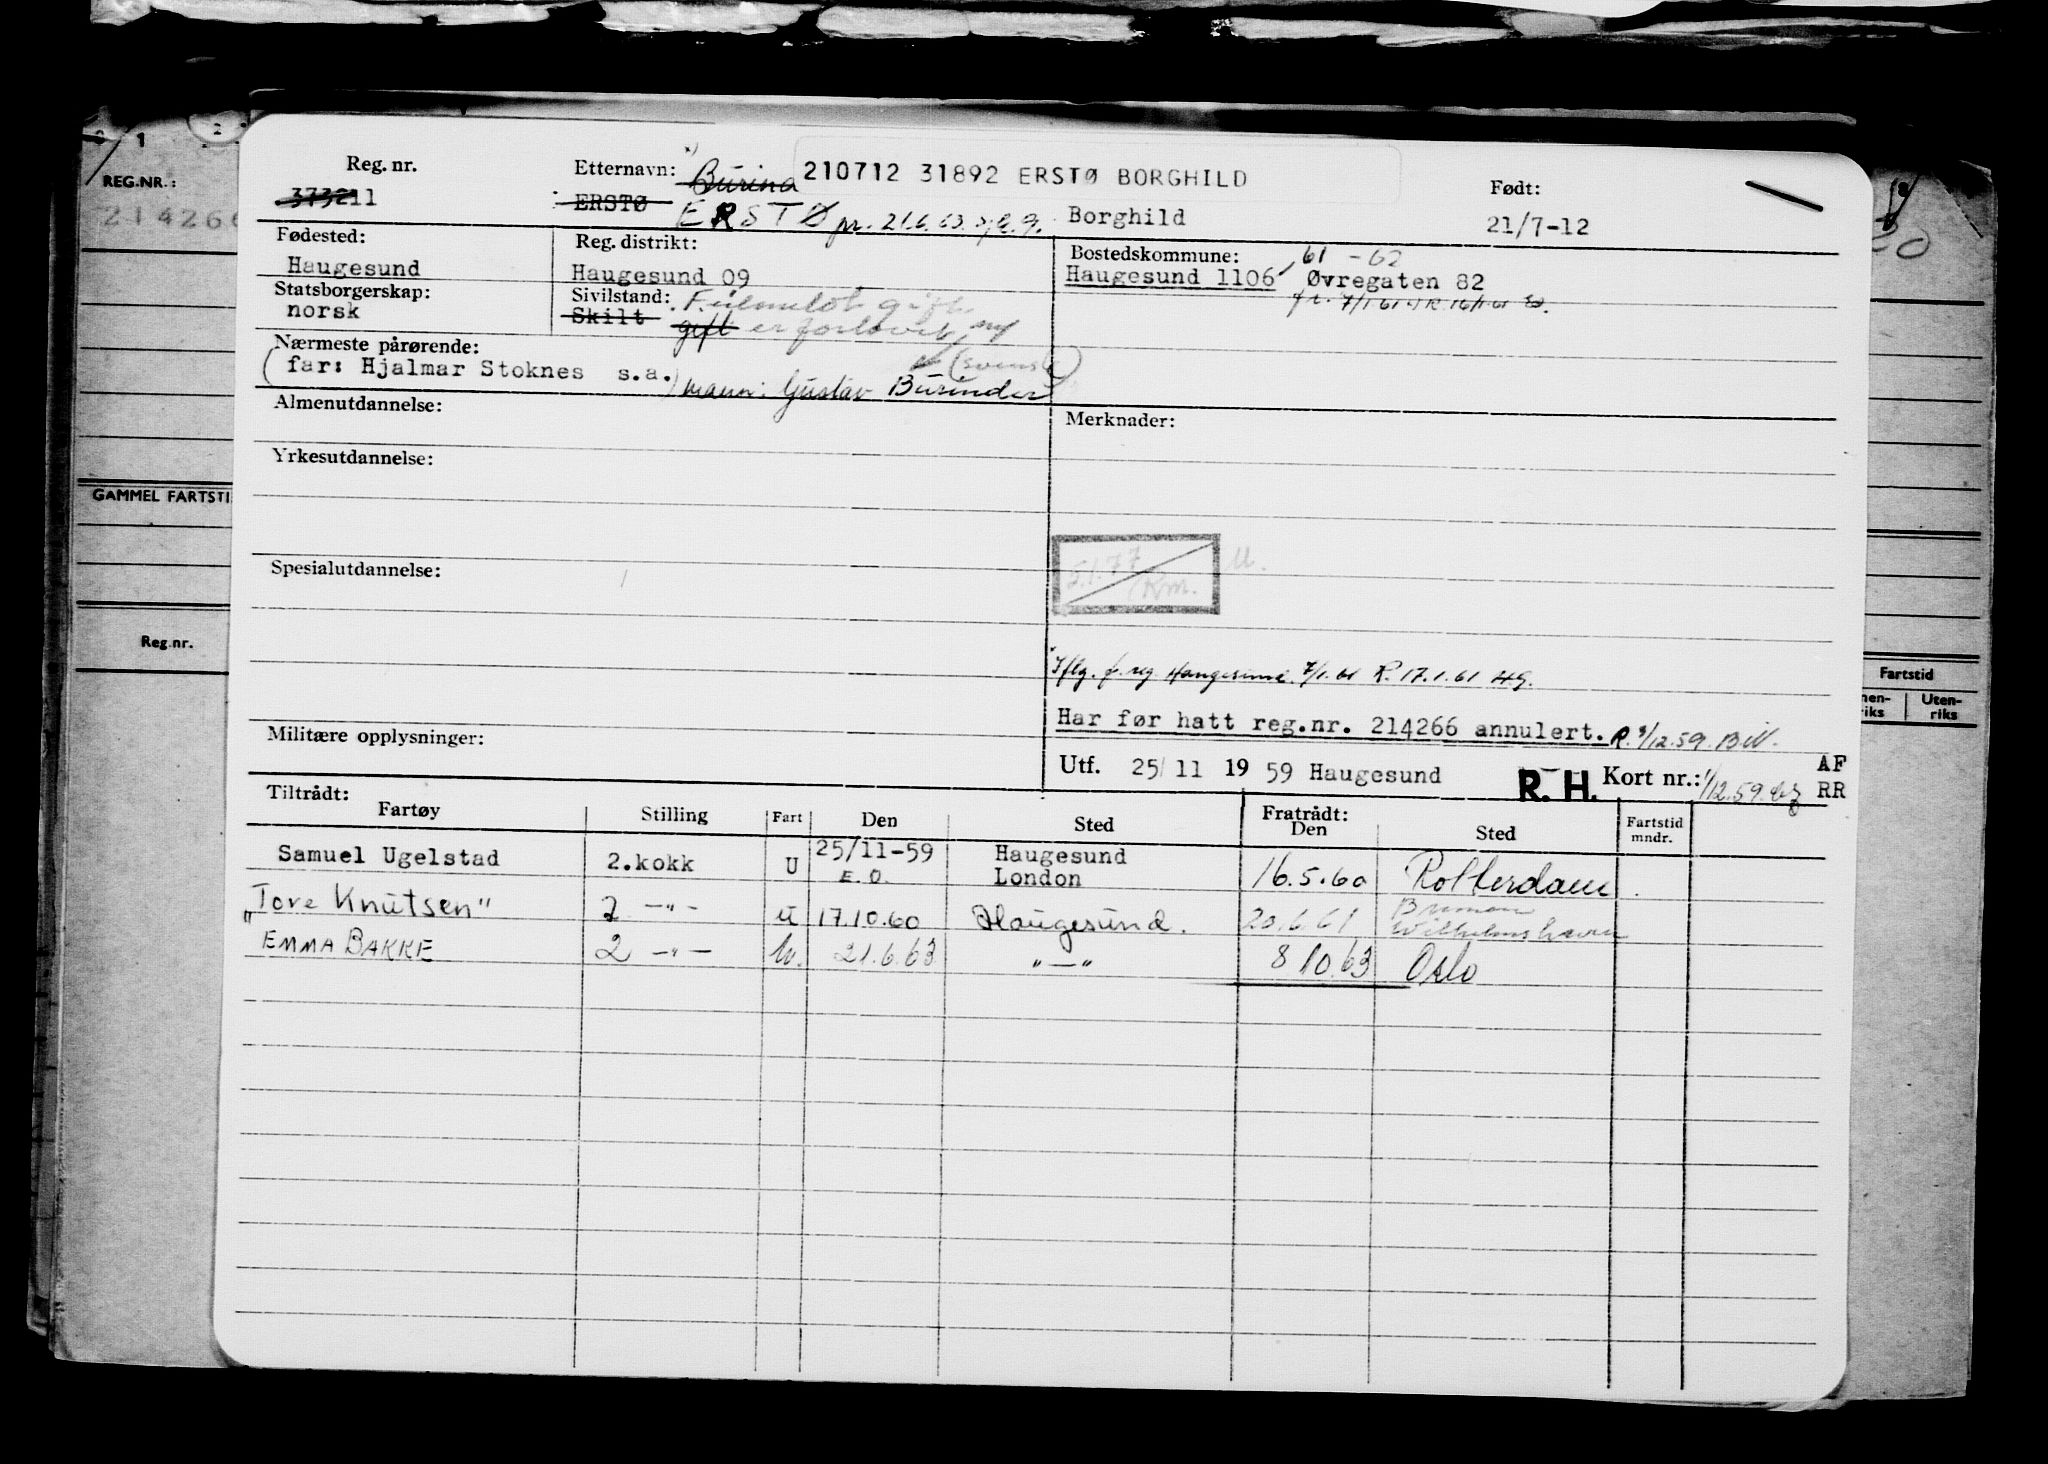 REG.NR.:
214266
GAMMEL FARTSTI
Reg.nr.
Reg. nr.
37321l
Etternavn: Burina 210712 31892 ERSTØ BORGHILD
ERSTØ ERSTØ pr. 21.6.63. Borghild
Født:
21/7-12
Fødested:
Haugesund
Reg. distrikt:
Haugesund 09
Bostedskommune: 61 - 62
Haugesund 1106 Øvregaten 82
fr. 7/1 61
Statsborgerskap:
norsk
Sivilstand: Feilmeldt gift
Skilt gift er forlovet
Nærmeste pårørende:
(svensk)
(far: Hjalmar Stoknes s.a.) mann: Gustav Burinder
Almenutdannelse:
Merknader:
Yrkesutdannelse:
Spesialutdannelse:
5.1.77
Km. U.
Iflg. f. reg Haugesund. 7/1.61 R. 17.1.61 HG.
Har før hatt reg.nr. 214266 annulert. R. 9/12.59.
Militære opplysninger:
Utf. 25/11 1959 Haugesund R. H. Kort nr.: 1/12.59. AF
RR
Tiltrådt:
Fartøy Stilling Fart Den Sted Fratrådt:
Den Sted Fartstid
mndr.
Samuel Ugelstad 2.kokk U 25/11-59 Haugesund
E.O. London 16.5.60 Rotterdam
"Tore Knutsen" 2 -"- U 17.10.60 Haugesund. 20.6.61 Wilhelmshaven
EMMA BAKKE 2 -"- U. 21.6.63 "-" 8 10.63 Oslo
Fartstid
Uten-
riks